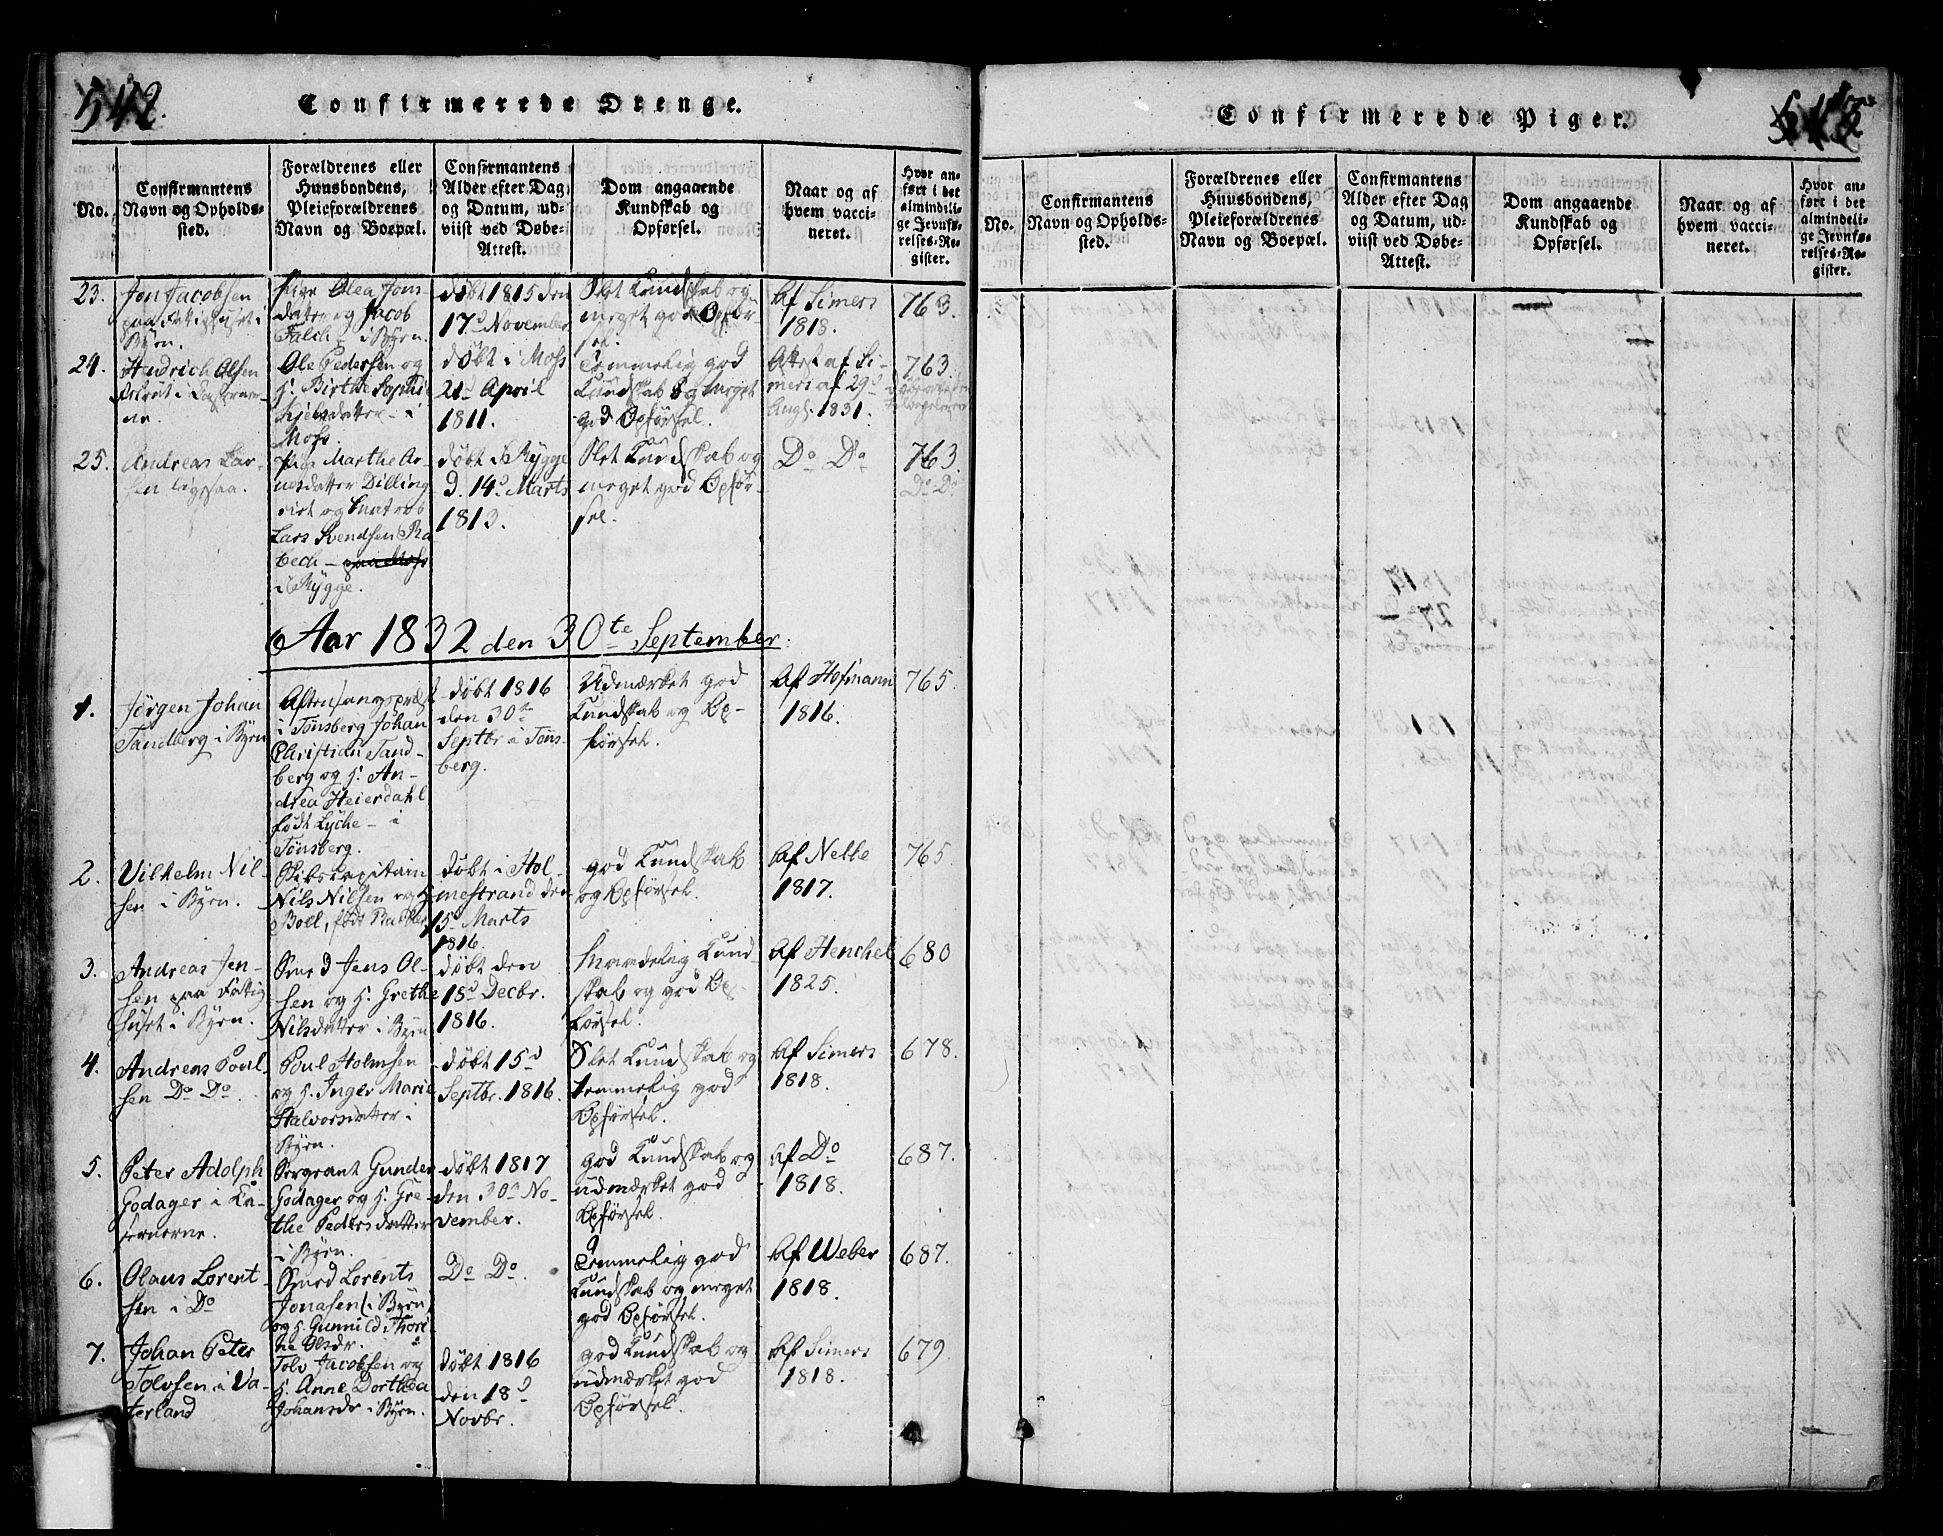 542.
Confirmerede Drenge.
No.
Confirmantens
Navn og Opholds-
sted.
Forældrenes eller
Huusbondens,
Pleieforældrenes
Navn og Boepæl.
Confirmantens
Alder efter Dag
og Datum, ud-
viist ved Døbe-
Attest.
Dom angaaende
Kundskab og
Opførsel.
Naar og af
hvem vacci-
neret.
Hvor an-
ført i det
almindeli-
ge Jevnfø-
relses-Re-
gister.
23.
Jon Jacobsen
paa Fattighuset i
Byen.
Pige Olea Jons
datter og Jacob
Falch - i Byen.
døbt 1815 den
17d November
Slet Kundskab og
meget god Opfør-
sel.
Af Simers
1818.
763.
24.
Hendrich Olsen
i Caserner-
ne.
Ole Pedersen og
H. Birthe Sophie
datter - i
Moss.
døbt i Moss
21d April
1811.
Temmelig god
Kundskab og meget
god Opførsel.
Attest af Si-
mers af 29d
Augs. 1831.
763.
25.
Andreas Lar-
sen
Pige Marthe Ar-
nesdatter Dilling
og
Lars Svendsen Ra
bech - paa Moss
i Rygge.
døbt i Rygge
d. 14d Marts
1813.
Slet Kundskab og
meget god Opfør-
sel.
Do Do
763.
Do Do
Aar 1832 den 30te September:
1.
Jørgen Johan
Tandberg i Byen
Aftensangspræst
i Tønsberg Johan
Christian Tand-
berg og H. An-
drea Heierdahl
født Lyche - i
Tønsberg.
døbt 1816
den 30te
Septbr i Tøns-
berg.
Udmærket god
Kundskab og Op-
førsel.
Af Hofmann
1816.
765.
2.
Vilhelm Nil-
sen i Byen.
Skibskapitain
Nils Nilsen og H.
Boel, født
døbt i Hol-
mestrand den
15d Marts
1816.
god Kundskab
og Opførsel.
Af Nelle
1817.
765.
3.
Andreas Jen-
sen paa Fattig-
huset i Byen.
Smed Jens Ol-
sen og H. Grethe
Nilsdatter i Byen
døbt den
18d Decbr.
1816.
Maadelig Kund-
skab og god Op-
førsel.
Af Henchel
1825.
680
4.
Andreas Poul-
sen Do Do.
Poul Holmsen
og H. Inger Marie
Halvorsdatter i
Byen.
døbt 15d
Septbr. 1816.
Slet Kundskab og
temmelig god
Opførsel.
Af Simers
1818.
678.
5.
Peter Adolph
Godager i Ca-
sernerne.
Sergeant Gunder
Godager og H. Gre-
the Pedersdatter
i Byen.
døbt 1817
den 30d No-
vember.
god Kundskab og
udmærket god
Opførsel.
af Do
1818.
687.
6.
Olaus Lorent-
sen i Do
Smed Lorents
Jonasen i Byen
og H. Gunnild Thori-
ne Olsdr.
Do Do.
Temmelig god
Kundskab og meget
god Opførsel.
Af Weber
1818.
687.
7.
Johan Peter
Tolvsen i Va-
terland
Tolv Jacobsen og
H. Anne Dorthea
Johansdr i Byen.
døbt 1816
den 18d
Novbr.
god Kundskab og
udmærket god
Opførsel.
Af Simers
1818.
679.
Confirmerede Piger.
No.
Confirmantens
Navn og Opholds-
sted.
Forældrenes eller
Huusbondens,
Pleieforældrenes
Navn og Boepæl.
Confirmantens
Alder efter Dag
og Datum, ud-
viist ved Døbe-
Attest.
Dom angaaende
Kundskab og
Opførsel.
Naar og af
hvem vacci-
neret.
Hvor an-
ført i det
almindeli-
ge Jevnfø-
relses-Re-
gister.